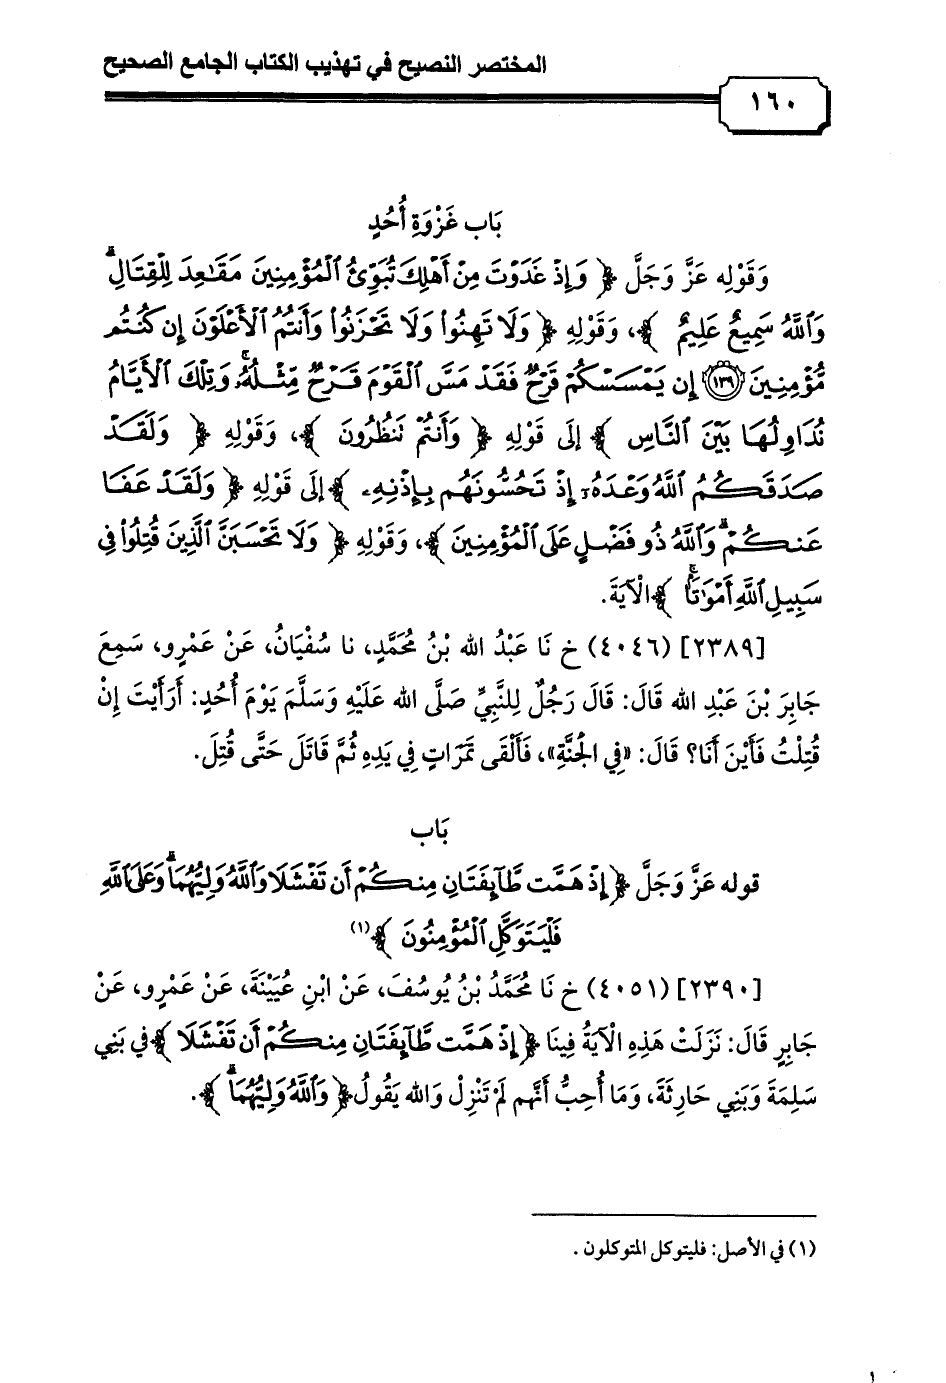 المختصر النصيح في تهذيب الكتاب الجامع الصحيح
١٦٠
بَاب غَزْوَةِ أُحُدٍ
وَقَوْلِه عَزَّ وَجَلَّ ﴿ وَإِذْ غَدَوْتَ مِنْ أَهْلِكَ تُبَوِّئُ ٱلْمُؤْمِنِينَ مَقَٰعِدَ لِلْقِتَالِ ۗ
وَٱللَّهُ سَمِيعٌ عَلِيمٌ ﴾، وَقَوْلِهِ ﴿ وَلَا تَهِنُوا۟ وَلَا تَحْزَنُوا۟ وَأَنتُمُ ٱلْأَعْلَوْنَ إِن كُنتُم
مُّؤْمِنِينَ ١٣٩ إِن يَمْسَسْكُمْ قَرْحٌ فَقَدْ مَسَّ ٱلْقَوْمَ قَرْحٌ مِّثْلُهُۥ ۚ وَتِلْكَ ٱلْأَيَّامُ
نُدَاوِلُهَا بَيْنَ ٱلنَّاسِ ﴾ إِلَى قَوْلِهِ ﴿ وَأَنتُمْ تَنظُرُونَ ﴾، وَقَوْلِهِ ﴿ وَلَقَدْ
صَدَقَكُمُ ٱللَّهُ وَعْدَهُۥٓ إِذْ تَحُسُّونَهُم بِإِذْنِهِۦ ﴾ إِلَى قَوْلِهِ ﴿ وَلَقَدْ عَفَا
عَنكُمْ ۗ وَٱللَّهُ ذُو فَضْلٍ عَلَى ٱلْمُؤْمِنِينَ ﴾، وَقَوْلِهِ ﴿ وَلَا تَحْسَبَنَّ ٱلَّذِينَ قُتِلُوا۟ فِي
سَبِيلِ ٱللَّهِ أَمْوَٰتًۢا ۚ ﴾ الْآيَةَ.
[٢٣٨٩] (٤٠٤٦) خ نَا عَبْدُ الله بْنُ مُحَمَّدٍ، نا سُفْيَانُ، عَنْ عَمْرٍو، سَمِعَ
جَابِرَ بْنَ عَبْدِ الله قَالَ: قَالَ رَجُلٌ لِلنَّبِيِّ صَلَّى الله عَلَيْهِ وَسَلَّمَ يَوْمَ أُحُدٍ: أَرَأَيْتَ إِنْ
قُتِلْتُ فَأَيْنَ أَنَا؟ قَالَ: «فِي الْجَنَّةِ»، فَأَلْقَى تَمَرَاتٍ فِي يَدِهِ ثُمَّ قَاتَلَ حَتَّى قُتِلَ.
بَاب
قوله عَزَّ وَجَلَّ ﴿ إِذْ هَمَّت طَّآئِفَتَانِ مِنكُمْ أَن تَفْشَلَا وَٱللَّهُ وَلِيُّهُمَا ۗ وَعَلَى ٱللَّهِ
فَلْيَتَوَكَّلِ ٱلْمُؤْمِنُونَ ﴾(١)
[٢٣٩٠] (٤٠٥١) خ نَا مُحَمَّدُ بْنُ يُوسُفَ، عَنْ ابْنِ عُيَيْنَةَ، عَنْ عَمْرٍو، عَنْ
جَابِرٍ قَالَ: نَزَلَتْ هَذِهِ الْآيَةُ فِينَا ﴿ إِذْ هَمَّت طَّآئِفَتَانِ مِنكُمْ أَن تَفْشَلَا ﴾ فِي بَنِي
سَلِمَةَ وَبَنِي حَارِثَةَ، وَمَا أُحِبُّ أَنَّهَم لَمْ تَنْزِلْ وَالله يَقُولُ ﴿ وَٱللَّهُ وَلِيُّهُمَا ۗ ﴾.
(١) في الأصل: فليتوكل المتوكلون .
١